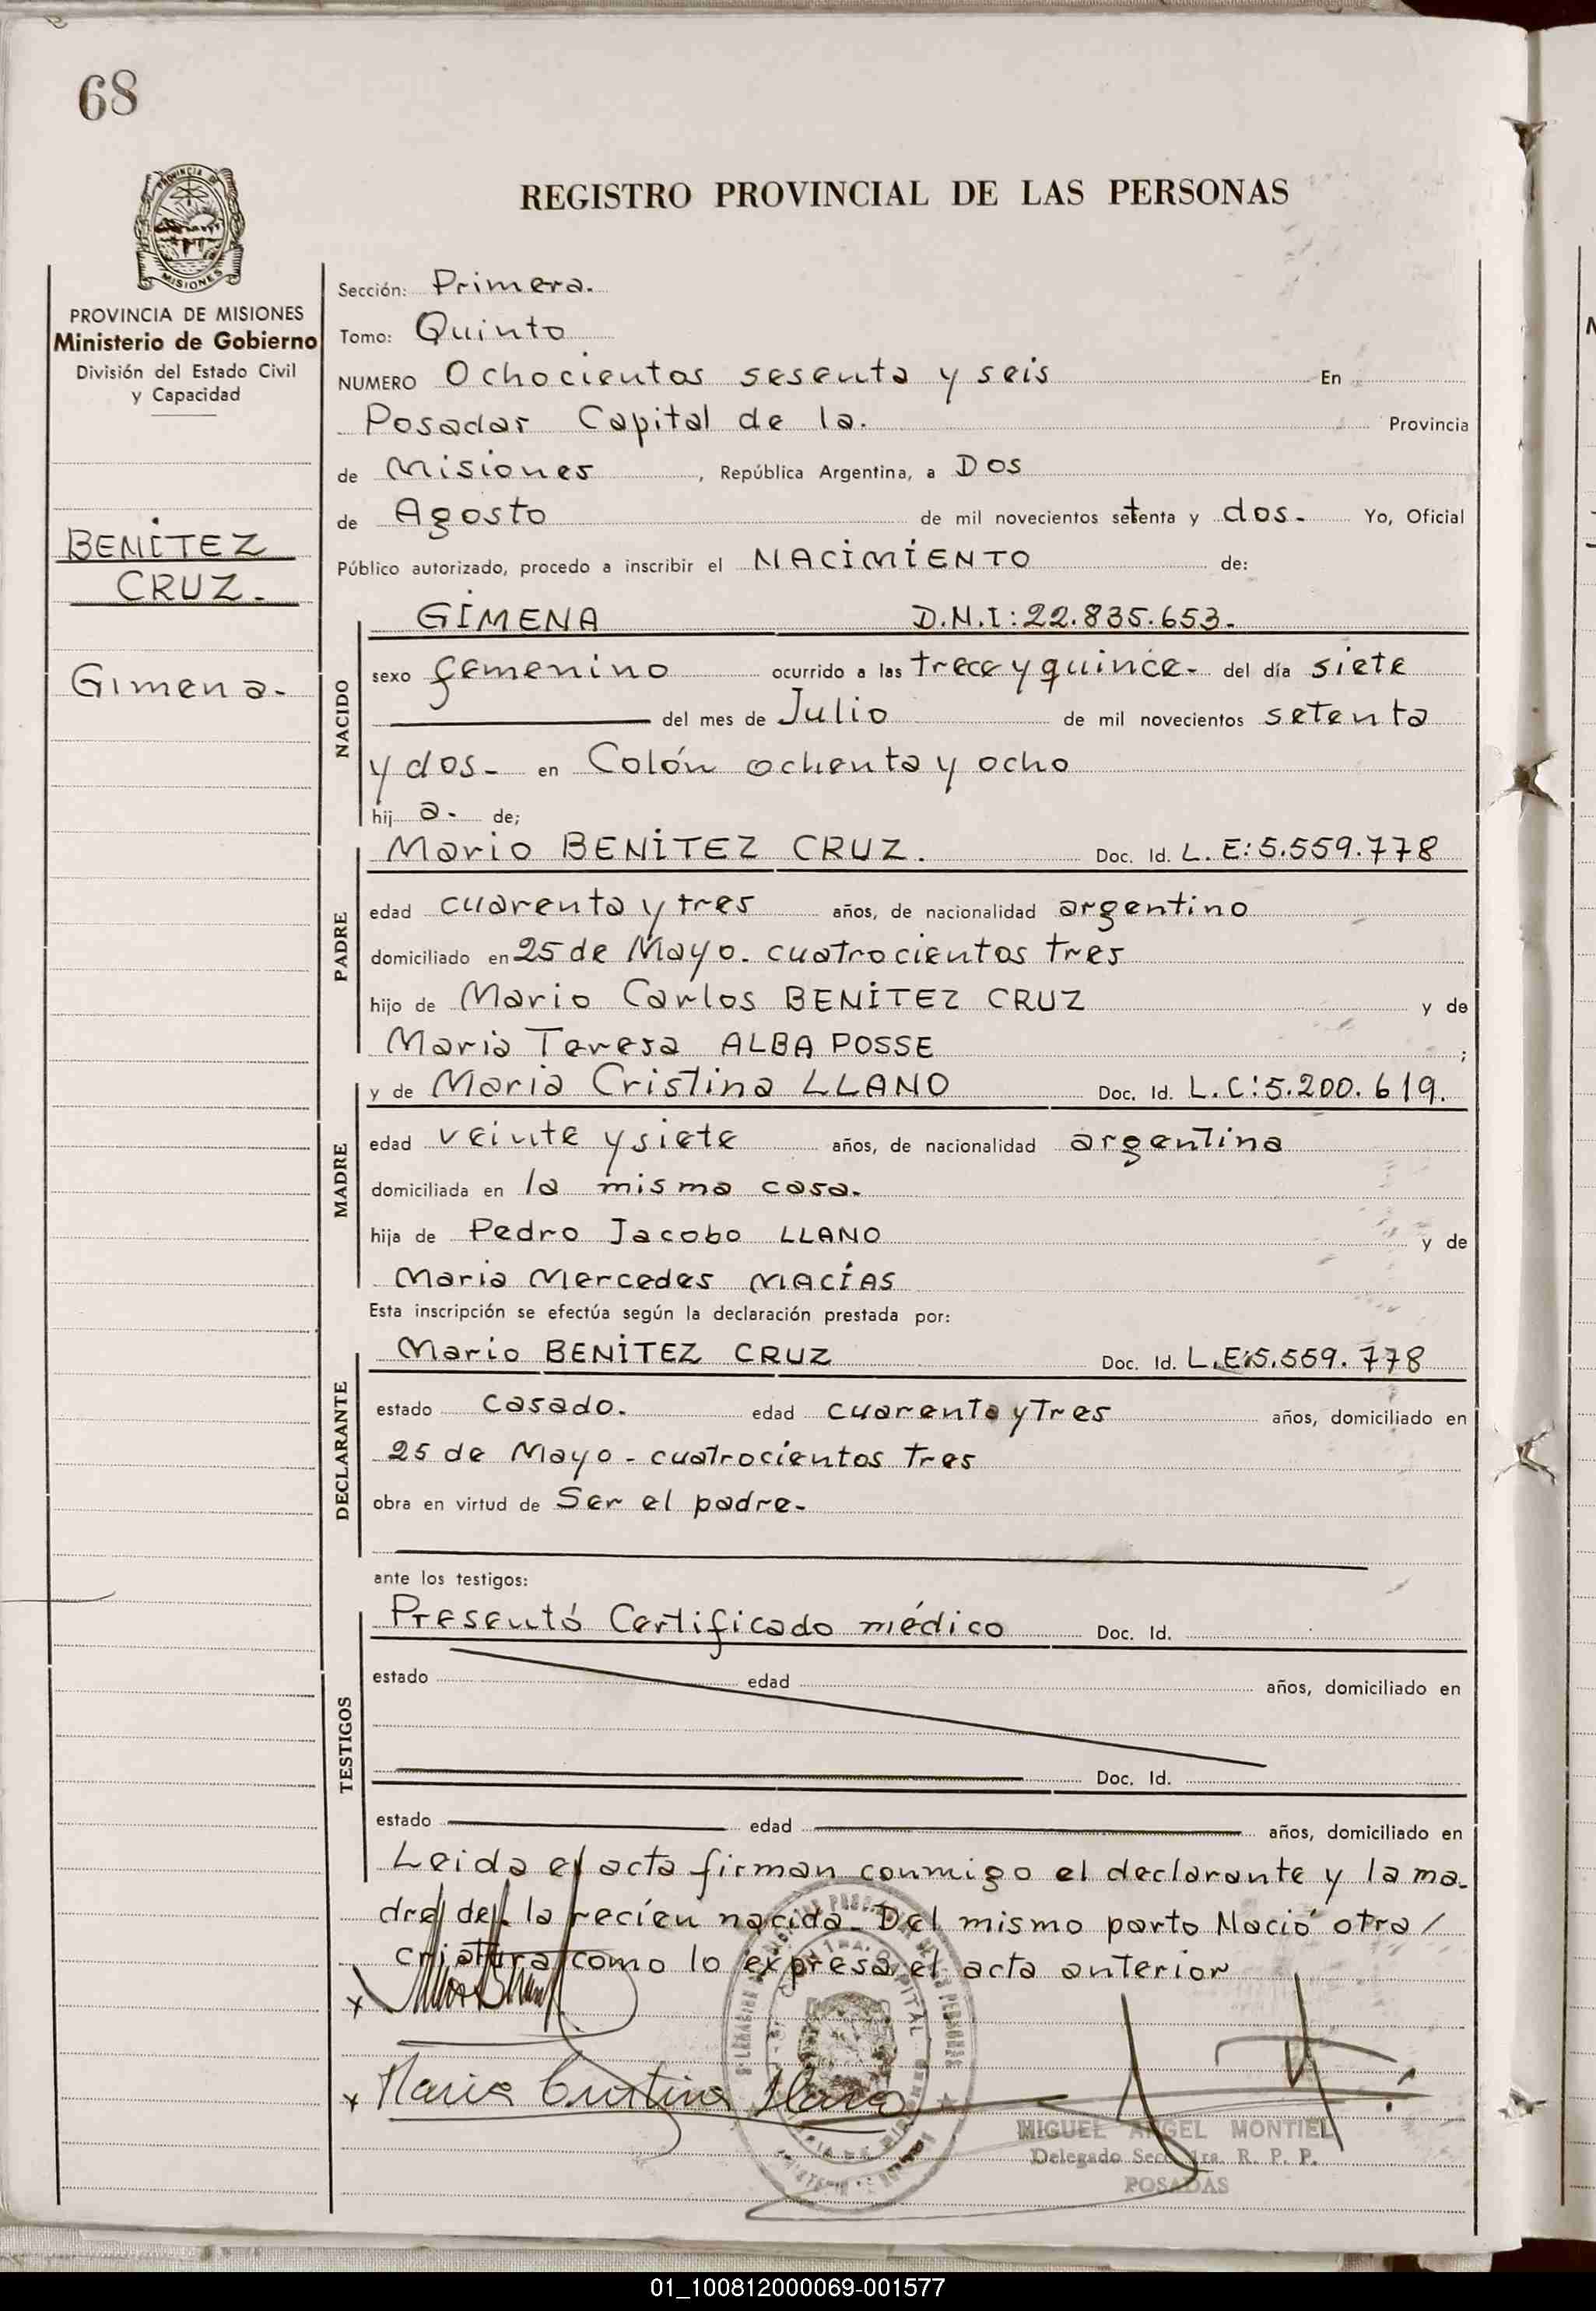 68
REGISTRO PROVINCIAL DE LAS PERSONAS
PROVINCIA DE
MISIONES
PROVINCIA DE MISIONES
Ministerio de Gobierno
División del Estado Civil
y Capacidad
BENITEZ
CRUZ.-
Gimena-
Sección: Primera.
Tomo: Quinto
NUMERO Ochocientos sesenta y seis En
Posadas Capital de la. Provincia
de Misiones, República Argentina, a Dos
de Agosto de mil novecientos setenta y dos.- Yo, Oficial
Público autorizado, procedo a inscribir el NACIMIENTO de:
NACIDO
GIMENA D.N.I:22.835.653.-
sexo femenino ocurrido a las trece y quince.- del día siete
del mes de Julio de mil novecientos setenta
y dos- en Colón ochenta y ocho
hij a.- de;
PADRE
Mario BENITEZ CRUZ. Doc. Id. L.E:5.559.778
edad cuarenta y tres años, de nacionalidad argentino
domiciliado en 25 de Mayo. cuatrocientos tres
hijo de Mario Carlos BENITEZ CRUZ y de
Maria Teresa ALBA POSSE ;
MADRE
y de Maria Cristina LLANO Doc. Id. L.C:5.200.619.
edad veinte y siete años, de nacionalidad argentina
domiciliada en la misma casa.
hija de Pedro Jacobo LLANO y de
Maria Mercedes MACÍAS
Esta inscripción se efectúa según la declaración prestada por:
DECLARANTE
Mario BENITEZ CRUZ Doc. Id. L.E:5.559.778
estado casado. edad cuarenta y Tres años, domiciliado en
25 de Mayo - cuatrocientos Tres
obra en virtud de Ser el padre-
ante los testigos:
TESTIGOS
Presentó Certificado médico Doc. Id.
estado edad años, domiciliado en
Doc. Id.
estado edad años, domiciliado en
Leida el acta firman conmigo el declarante y la ma-
dre de la recien nacida- Del mismo parto Nació otra /
criatura como lo expresa el acta anterior
x
x Maria Cristina Llano
MIGUEL ANGEL MONTIEL
Delegado Secc. 1ra. R. P. P.
POSADAS
01_100812000069-001577